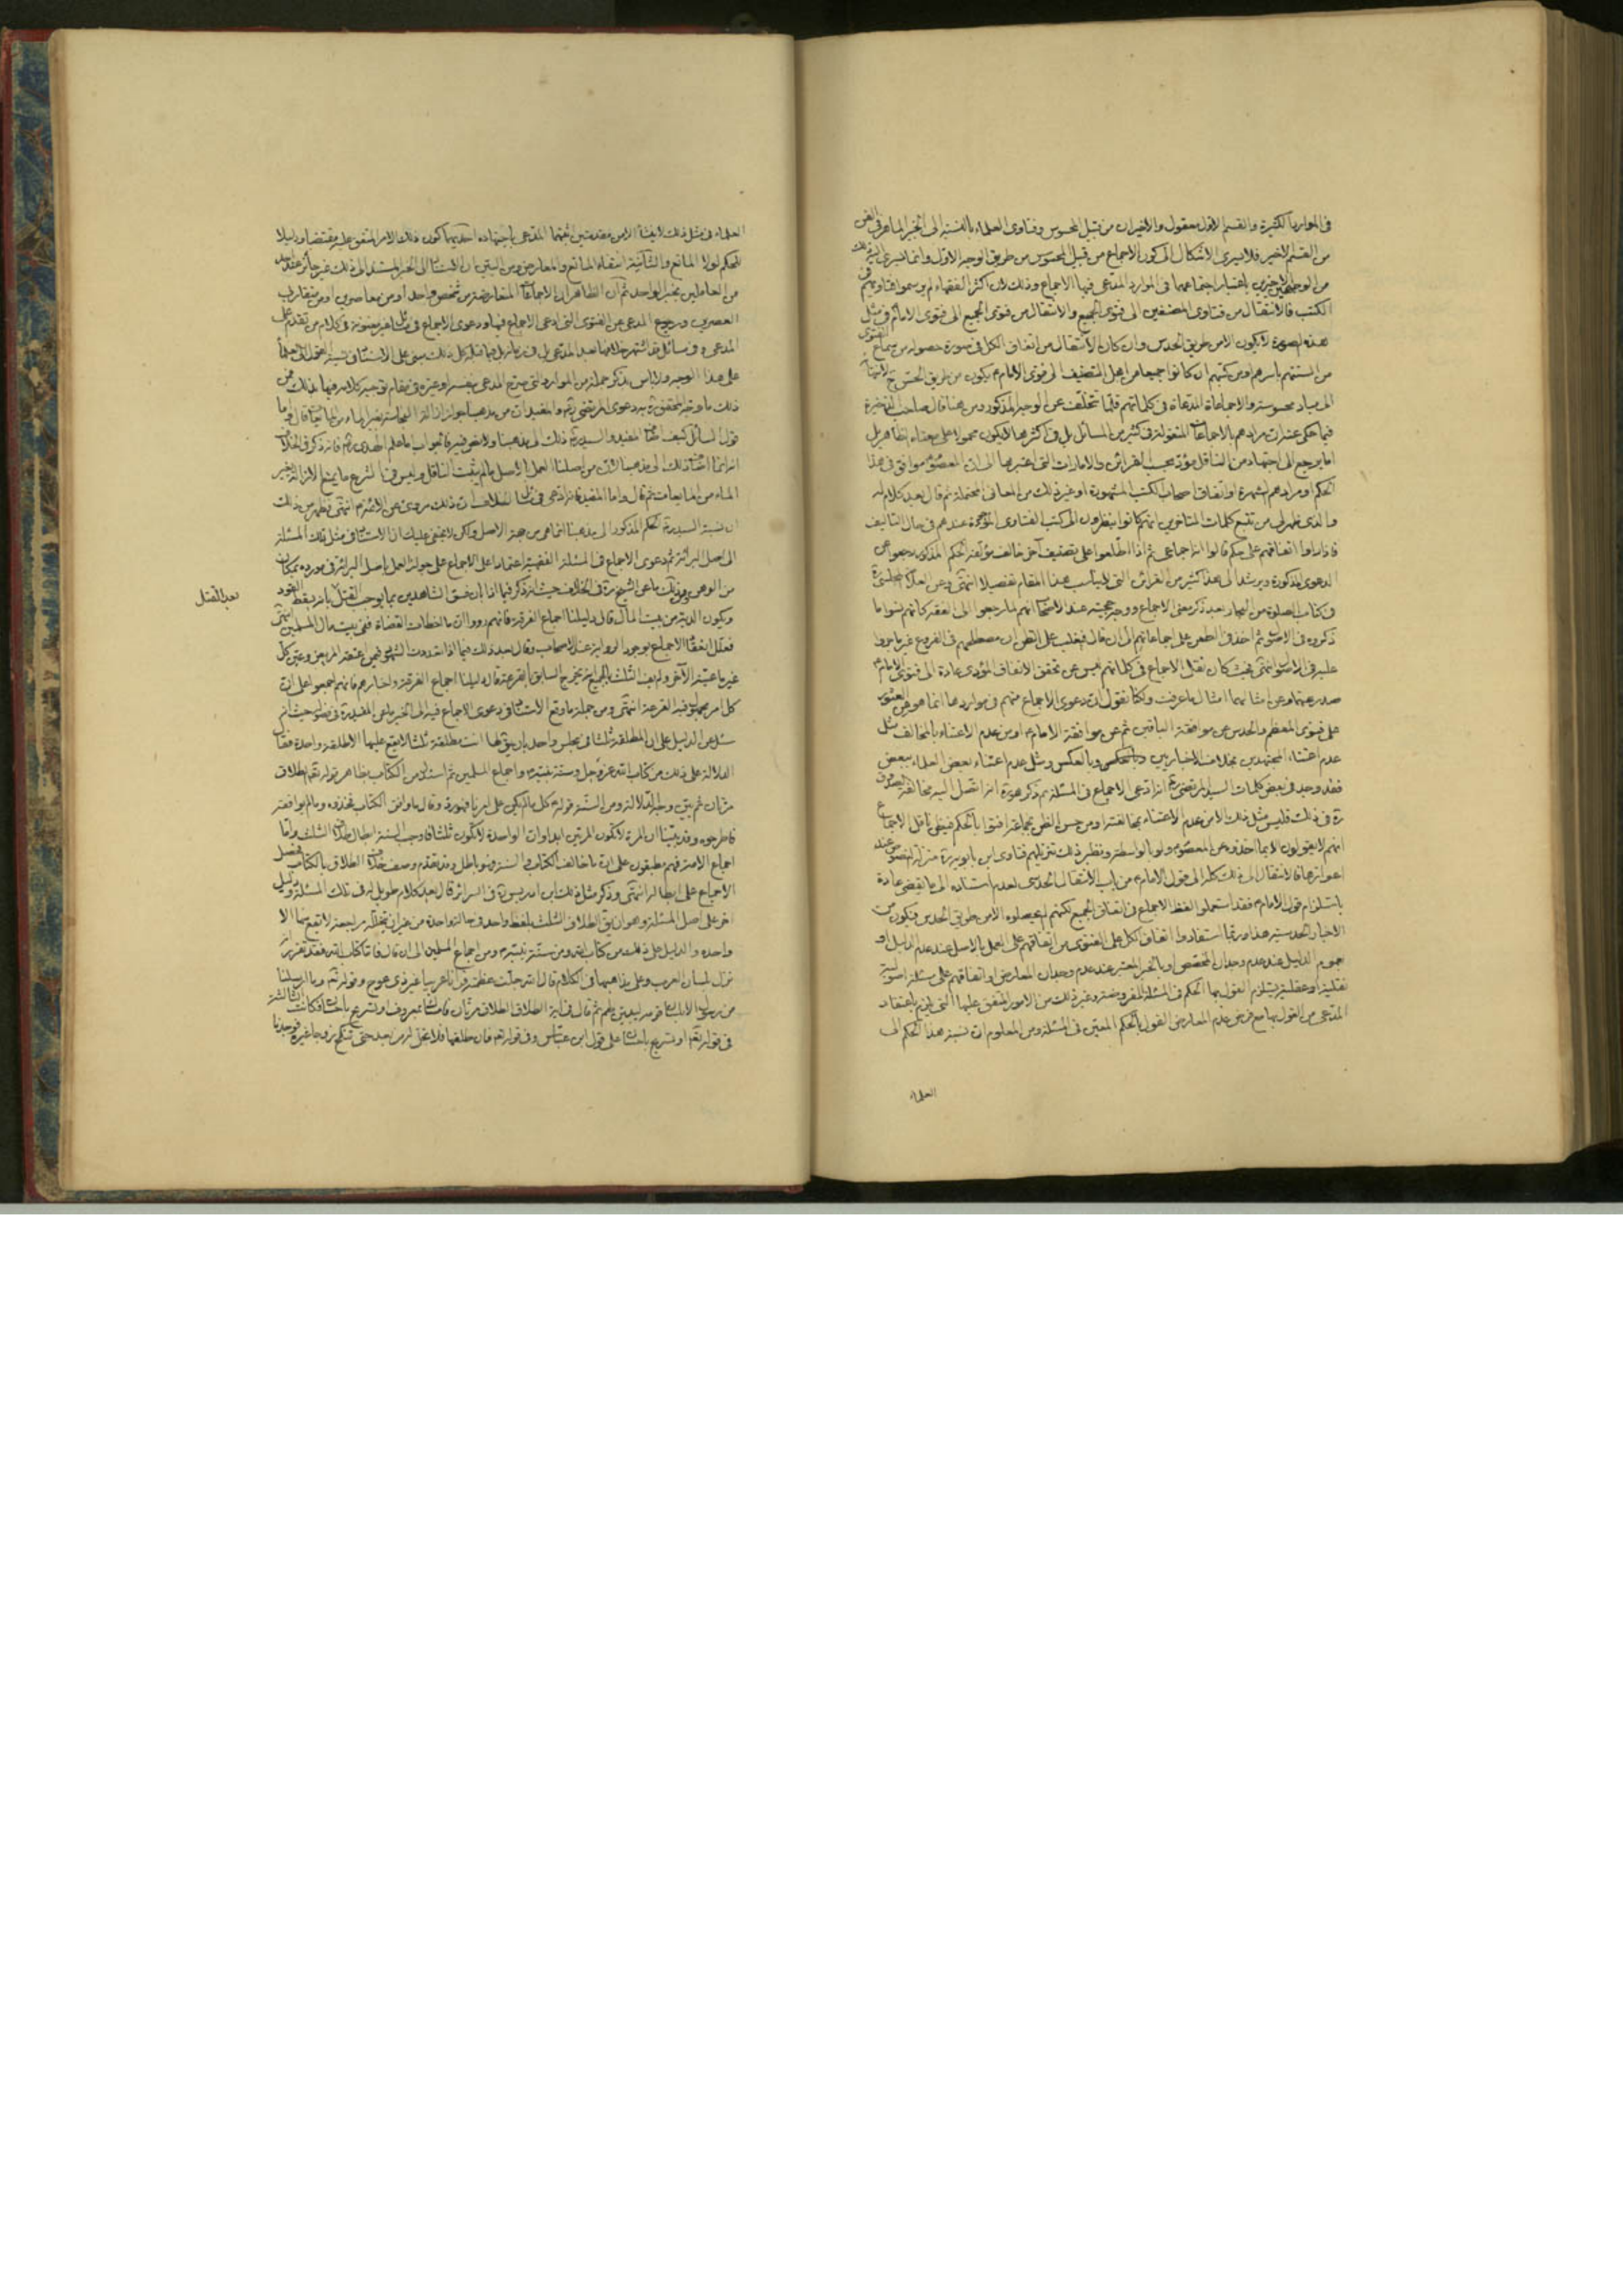 في الموارد الكثيرة والقسم الاول معقول والاخيران من قبيل المحسوس وفتاوى العلماء بالنسبة الى الخبر الماهر في الفن
من القسم الاخير فلا يسرى الاشكال الى كون الاجماع من قبيل المحسوس من طريق الوجه الاول وانما يسرى اليه
من الوجهين الاخيرين باعتبار اجتماعهما في الموارد المدعى فيها الاجماع وذلك لان اكثر الفقهاء لم يرسموا فتاويهم في
الكتب فالانتقال من فتاوى المصنفين الى فتوى الجميع والانتقال من فتوى الجميع الى فتوى الامام في مثل
هذه الصورة لا يكون الا من طريق الحدس وان كان الانتقال من اتفاق الكل في صورة حصوله من سماع الفتوى
من السنتهم باسرهم او من كتبهم ان كانوا جميعا من اهل التصنيف الى فتوى الامام يكون من طريق الحس
الى مباد محسوسة والاجماعات المدعاة في كلماتهم قلما تتخلف عن الوجه المذكور ومن هنا قال صاحب الذخيرة
فيما حكى عنه ان مرادهم بالاجماعات المنقولة في كثير من المسائل بل في اكثرها لا يكون محمولا على معناه الظاهر بل
اما يرجع الى اجتهاد من الناقل مؤد بحسب القرائن والامارات التي اعتبرها الى ان المعصوم موافق في هذا
الحكم او مرادهم الشهرة او اتفاق اصحاب الكتب المشهورة او غير ذلك من المعاني المحتملة ثم قال بعد كلام له
والذى ظهر لى من تتبع كلمات المتاخرين انهم كانوا ينظرون الى كتب الفتاوى الموجودة عندهم في حال التاليف
فاذا راوا اتفاقهم على حكم قالوا انه اجماعى ثم اذا اطلعوا على تصنيف آخر خالف مؤلفه الحكم المذكور رجعوا عن
الدعوى المذكورة ويرشد الى هذا كثير من القرائن التي لا يناسب هذا المقام تفصيلها انتهى وعن العلامة المجلسى
في كتاب الصلوة من البحار بعد ذكر معنى الاجماع ووجه حجيته عند الاصحاب انهم لما رجعوا الى الفقه كانهم نسوا ما
ذكروه في الاصول ثم اخذ في الطعن على اجماعاتهم الى ان قال فيغلب على الظن ان مصطلحهم في الفروع غير ما جروا
عليه في الاصول انتهى بحيث كان نقل الاجماع في كلماتهم ليس عن تحقق الاتفاق المؤدى عادة الى فتوى الامام
صدر عنهما وعن امثالهما امثال ما عرفت ولكنا نقول ان دعوى الاجماع منهم في مواردها انما هو من العثور
على فتوى المعظم والحدس عن موافقة الباقين ثم عن موافقة الامام او من عدم الاعتناء بالمخالف مثل
عدم اعتناء المجتهدين بخلاف الاخباريين وبالعكس ومثل عدم اعتناء بعض العلماء ببعض
فقد وجد في بعض كلمات السيد المرتضى انه ادعى الاجماع في المسئلة ثم ذكر
في ذلك فليس مثل ذلك الا من عدم الاعتناء بمخالفته او من حسن الظن بجماعة افتوا بالحكم فيظن ناقل الاجماع
انهم لا يقولون الا بما اخذوه عن المعصوم ولو بالواسطة ونظير ذلك تنزيلهم فتاوى ابن بابويه منزلة النصوص عند
اعوازها فالانتقال الى ذلك كله الى قول الامام من باب الانتقال الحدسى لعدم استناده الى ما يقتضى عادة
باستلزام قول الامام فقد استعملوا لفظ الاجماع في اتفاق الجميع لكنهم لم يحصلوه الا من طريق الحدس فيكون من
الاخبار الحدسية هذا وربما استفادوا اتفاق الكل على الفتوى من اتفاقهم على العمل بالاصل عند عدم الدليل او
عموم الدليل عند عدم وجدان المخصص او بالخبر المعتبر عند عدم وجدان المعارض او اتفاقهم على مسئلة اصولية
نقلية او عقلية يستلزم القول بها الحكم في المسئلة المفروضة وغير ذلك من الامور المتفق عليها التي يلزم باعتقاد
المدعى من القول بها مع فرض عدم المعارض القول بالحكم المعين في المسئلة ومن المعلوم ان نسبة هذا الحكم الى
العلماء
العلماء في مثل ذلك لا ينشأ الا من مقدمتين اثبتهما المدعى باجتهاده احديهما كون ذلك الامر المتفق عليه مقتضيا ودليلا
للحكم لولا المانع والثانية انتفاء المانع والمعارض ومن البين ان الاستناد الى الخبر المستند الى ذلك غير جائز عند احد
من العاملين بخبر الواحد ثم ان الظاهر ان الاجماعات المتعارضة من شخص واحد او من معاصرين او من متقاربى
العصرين ورجوع المدعى عن الفتوى التي ادعى الاجماع فيها ودعوى الاجماع في مسائل غير معنونة في كلام من تقدم على
المدعى وفي مسائل قد اشتهر خلافها بعد المدعى بل في زمانه بل فيما قبله كل ذلك مبنى على الاستناد في نسبة القول الى العلماء
على هذا الوجه ولا باس بذكر جملة من الموارد التي صرح المدعى بنفسه او غيره في مقام توجيه كلامه فيها بذلك فمن
ذلك ما وجه المحقق به دعوى المرتضى والمفيد ان من مذهبنا جواز ازالة النجاسة بغير الماء من المايعات قال واما
قول السائل كيف اضاف المفيد والسيد ذلك الى مذهبنا ولا نص فيه فالجواب اما علم الهدى فانه ذكر في الخلاف
انه انما اضاف ذلك الى مذهبنا لان من اصلنا العمل بالاصل ما لم يثبت الناقل وليس في الشرع ما يمنع الازالة بغير
الماء من المايعات ثم قال واما المفيد فانه ادعى في مسائل الخلاف ان ذلك مروى عن الائمة انتهى فظهر من ذلك
ان نسبة السيد الحكم المذكور الى مذهبنا انما هي من جهة الاصل ولكن لا يخفى عليك ان الاستناد في مثل تلك المسئلة
الى اصل البرائة ثم دعوى الاجماع في المسئلة الفقهية اعتمادا على الاجماع على جواز العمل باصل البرائة في مورده بمكان
من الوهن ومن ذلك ما عن الشيخ في الخلاف حيث انه ذكر فيما اذا بان فسق الشاهدين بما يوجب القتل بانه يسقط القود
بعد القتل
ويكون الدية من بيت المال قال دليلنا اجماع الفرقة فانهم رووا ان ما اخطات القضاة ففى بيت مال المسلمين انتهى
فعلل انعقاد الاجماع بوجود الرواية عند الاصحاب وقال بعد ذلك فيما اذا تعددت الشهود فيمن اعتقه المريض وعين كل
غير ما عينه الآخر ولم يف الثلث بالجميع انه يخرج السابق بالقرعة قال دليلنا اجماع الفرقة واخبارهم فانهم اجمعوا على ان
كل امر مجهول فيه القرعة انتهى ومن جملة ما وقع الاستناد في دعوى الاجماع فيه الى الخبر ما عن المفيد في فصوله حيث انه
سئل عن الدليل على ان المطلقة ثلثا في مجلس واحد بان يقول لها انت طالقة ثلثا لا يقع عليها الا طلقة واحدة فقال
الدلالة على ذلك من كتاب الله عز وجل وسنة نبيه واجماع المسلمين ثم استدل من الكتاب بظاهر قوله تعم الطلاق
مرتان ثم بين وجه الدلالة ومن السنة قوله كل ما لم يكن على امرنا فهو رد وقال ما وافق الكتاب فخذوه وما لم يوافقه
فاطرحوه وقد بينا ان المرة لا تكون المرتين ابدا وان الواحدة لا تكون ثلثا فاوجب السنة ابطال طلاق الثلث واما
اجماع الامة فهم مطبقون على ان ما خالف الكتاب والسنة فهو باطل وقد تقدم وصف خلاف الطلاق بالكتاب فحصل
الاجماع على ابطاله انتهى وذكر مثل ذلك ابن ادريس في السرائر قال بعد كلام طويل له في تلك المسئلة ودليل
آخر على اصل المسئلة وهو ان يوقع الطلاق الثلث بلفظ واحد في حالة واحدة من غير ان يتخلله مراجعة لا يقع بها الا
واحدة والدليل على ذلك من كتاب الله ومن سنة نبيه ومن اجماع المسلمين الى ان قال فاما كتاب الله فقد تقرر انه
نزل بلسان العرب وعلى مذاهبها في الكلام قال الله جلت عظمته قرآنا عربيا غير ذى عوج وقوله تعم وما ارسلنا
من رسول الا بلسان قومه ليبين لهم ثم قال في آية الطلاق الطلاق مرتان فامساك بمعروف او تسريح باحسان فكانت الثالثة
في قوله تعم او تسريح باحسان على قول ابن عباس وفي قوله تعم فان طلقها فلا تحل له من بعد حتى تنكح زوجا غيره فوجدنا